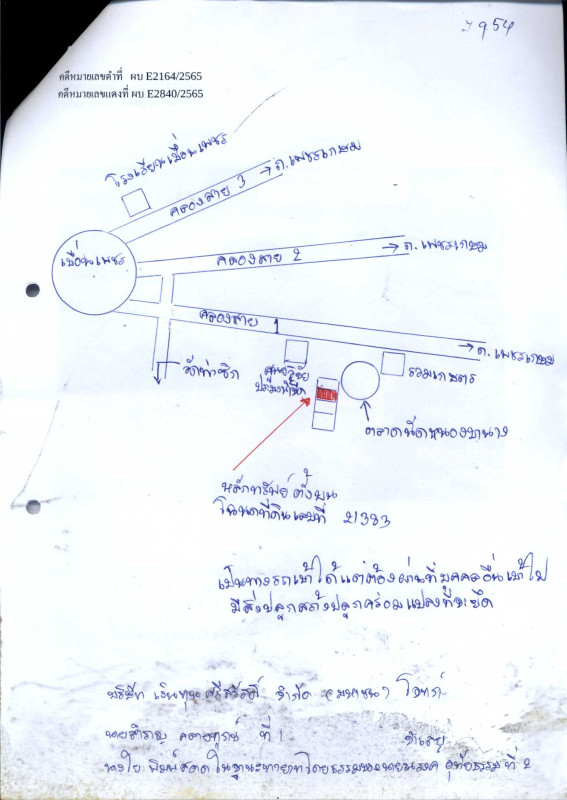 954
คดีหมายเลขดำที่ ผบ E2164/2565
คดีหมายเลขแดงที่ ผบ E2840/2565
โรงเรียนเขื่อนเพชร
คลองสาย 3
ถ.เพชรเกษม
เขื่อนเพชร
คลองสาย 2
ถ.เพชรเกษม
คลองสาย 1
ถ.เพชรเกษม
วัดท่าซิก
ศูนย์วิจัย
ประมงน้ำจืด
รวมเกษตร
ตลาดนัดหนองบานาง
หลักทรัพย์ ตั้งบน
โฉนดที่ดินเลขที่ 21383
เป็นทางรถเข้าได้แต่ต้องผ่านที่บุคคลอื่นเข้าไป
มีสิ่งปลูกสร้างปลูกคร่อมแปลงที่จะยึด
บริษัท เงินทุน ศรีสวัสดิ์ จำกัด (มหาชน) โจทก์
นายสำราญ ที่ 1 จำเลย
ในฐานะทายาทโดยธรรมของนายณรงค์ ที่ 2